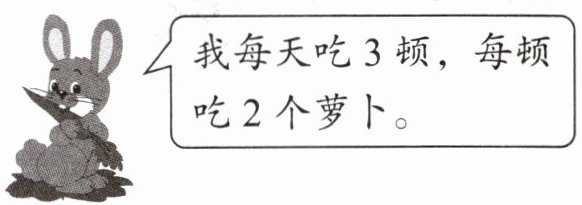 我每天吃3顿，每顿
吃2个萝卜。